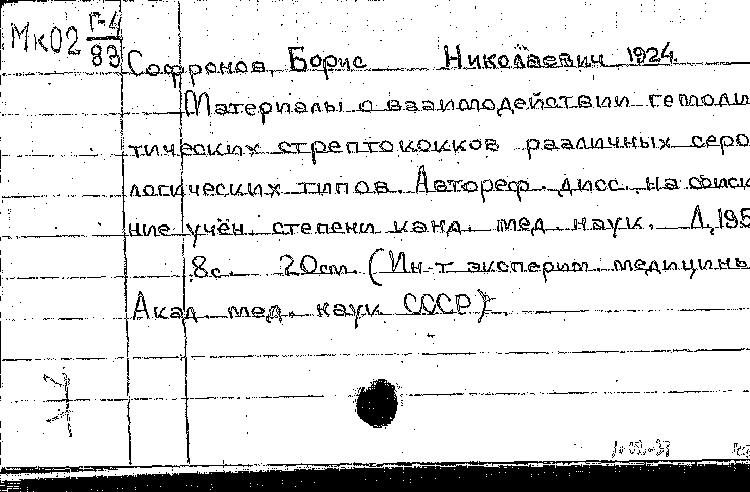 МК02 Г-4/83
Софронов, Борис Николаевич 1924.
Материалы о взаимодействии гемоли
тических стрептококков различных серо
логических типов. Автореф. дисс. на соиск
ние учён. степени канд. мед. наук. Л., 195
8с. 20cm. (Ин-т эксперим. медицины
Акад. мед. наук СССР).